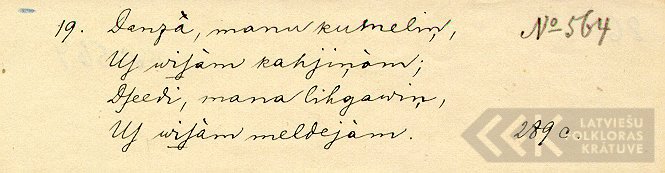 19. Danzà, manu kumeliņ, № 564
Us wisàm kahjiņàm;
Dseedi, mana lihgawiņ,
Us wisàm meldejàm. 289 c.
LATVIEŠU
FOLKLORAS
KRĀTUVE